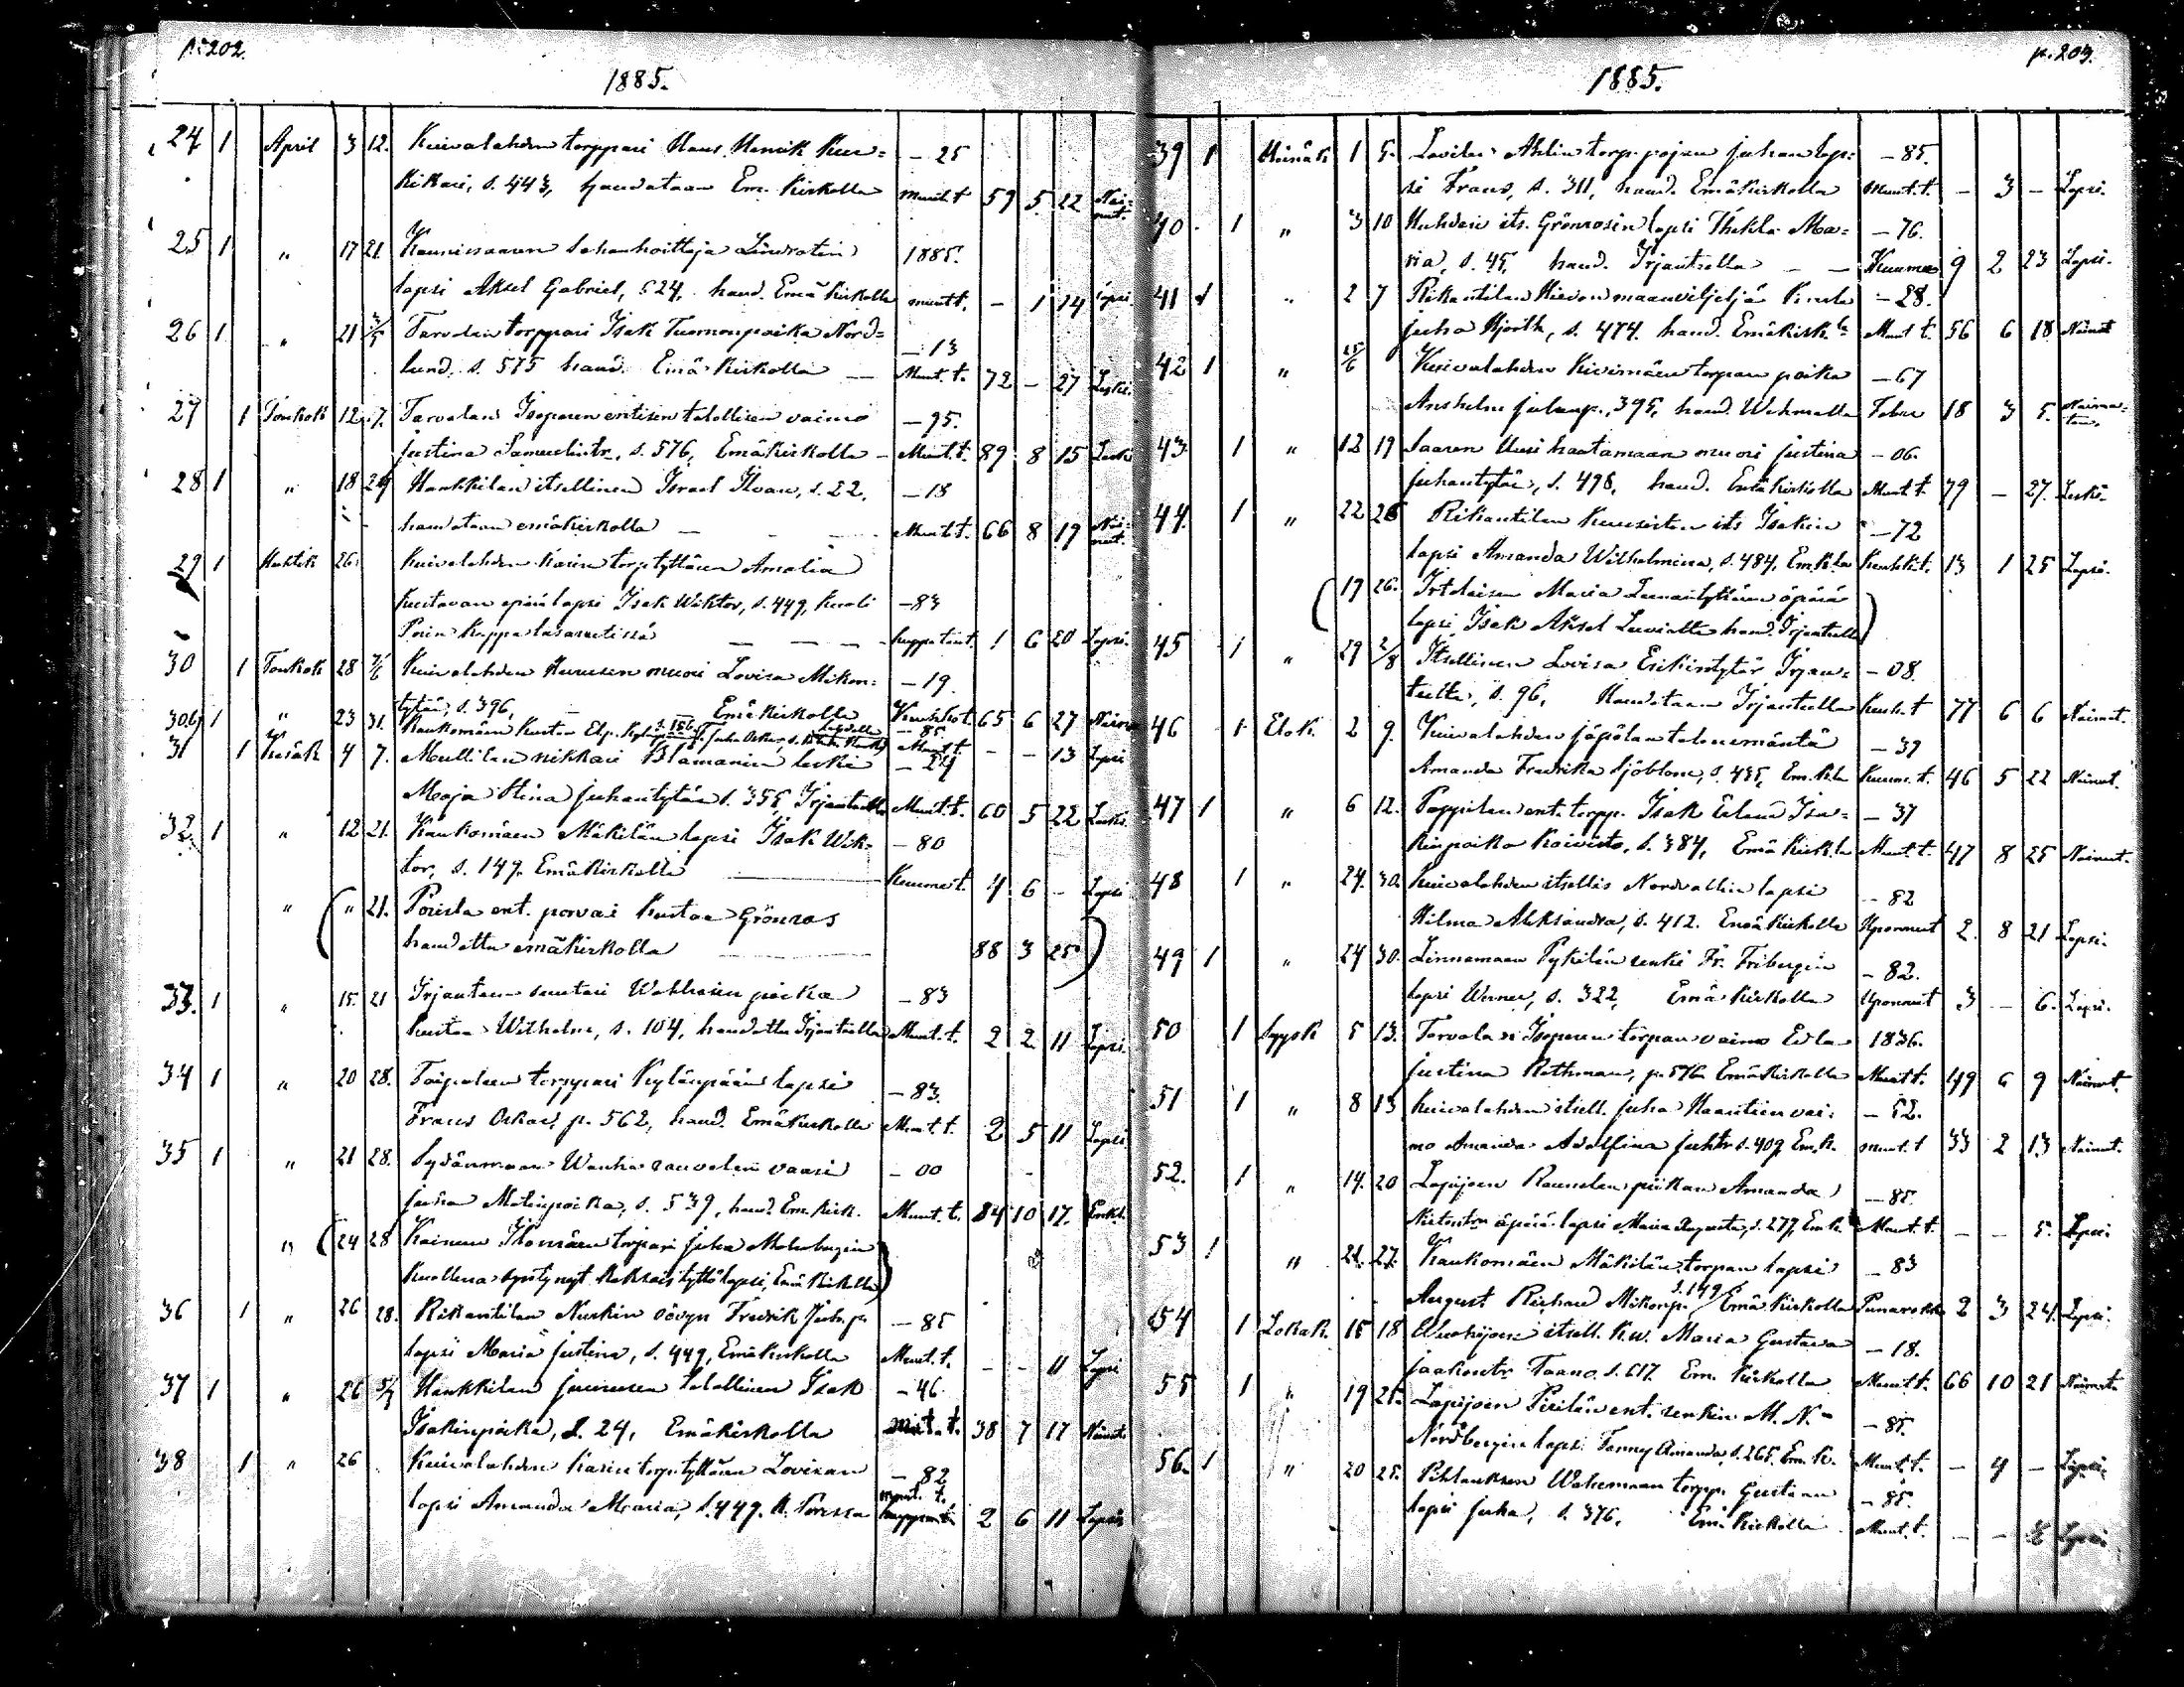 p. 202.
1885.
24 1 April 3 12. Kuivalahden torppari Hans Henrik Kuu= – 25
kikari, s. 443, haudataan Em. kirkolla muut.t 59 5 22 Nai-
nut.
25 1 " 17 21. Kaunissaaren sahanhoittaja Lindrotin 1885.
lapsi Aksel Gabriel, s 24, haud. Emä kirkolla muut.t. – 1 14 Lapsi
26 1 " 21 3/5 Tarvolan torppari Isak Tuomonpoika Nord= – 13
lund, s. 575 haud. Emä kirkolla — Muut.t. 72 – 27 Leski.
27 1 Toukok 12 17. Tarvolan Isoperen entisen talollisen vaimo – 95.
Justina Samuelintr., s. 576, Emäkirkolla – Muut.t. 89 8 15 Leski
28 1 " 18 24 Hankkilan itsellinen Israel, s. 22, – 18
haudataan emäkirkolla – Muut.t. 66 8 19 Nai-
nut.
29 1 Huhtik 26. Kuivalahden Karin torp.tyttären Amalia
Kustavan äpärä lapsi Isak Wiktor, s. 449, kuoli – 83
Porin kuppa lasaretissä — — — kuppataut. 1 6 20 Lapsi.
30 1 Toukok 28 7/6 Kuivalahden muori Lovisa Mikon= – 19.
tytär, s. 396, — Emäkirkolla Keuhkot. 65 6 27 Nainu
30b 1 " 23 31. Kaukomäen Juha Oskar, – 85. Muut.t – – 13 Lapsi
31 1 Kesäk 4 7. Mullilan nikkari Blomanin leski – 24
Maja Stina Juhantytär s. 355 Irjanteella Muut.t. 60 5 22 Leski.
32. 1 " 12 21. Kaukomäen Mäkilän lapsi Isak Wik= – 80
tor, s. 149. Emäkirkolla — Kuumet. 4 6 – Lapsi
" ( " 21. Porista ent. porvari Kustaa Grönros
haudattu emäkirkolla — 88 3 25 )
33. 1 " 15. 21 Irjanteen suutari Wahlrosin poika – 83
Kustaa Wilhelm, s. 104, haudattu Irjanteella Muut.t. 2 2 11 Lapsi.
34 1 " 20 28. Taipaleen torppari Kylänpään lapsi – 83.
Frans Oskar, p. 562, haud. Emäkirkolla Muut.t. 2 5 11 Lapsi
35 1 " 21 28. Sydänmaan Wanha rauvolan vaari – 00
Juha Matinpoika, s. 539, haud. Em. kirk. Muut.t. 84 10 17. Leski.
" ( 24 28 Kainun Ilomäen torpari Juha Malmbergin
kuollena syntynyt kaksois tyttölapsi, Emä kirkolla )
36 1 " 26 28. Rikantilan Nurkin Fredrik Juh.p. – 85
lapsi Maria Justina, s. 449, Emäkirkolla Muut.t. – – 11 Lapsi
37 1 " 26 5/7 Hankkilan Juurusen talollinen Isak – 46.
Isakinpoika, s. 24, Emäkirkolla Muut.t. 38 7 17 Nainut
38 1 " 26 Kuivalahden Karin torp.tyttären Lovisan – 82
lapsi Amanda Maria, s. 449. k. Porissa muut. t. 2 6 11 Lapsi
p. 203.
1885.
39 1 Heinäk 1 5. Lavilan Ahlin torp. pojan Juhan lap: – 85.
si Frans, s. 311, haud. Emäkirkolla Muut.t. – 3 – Lapsi.
40. 1 " 3 10 Huhdin its. Grönrosin lapsi Thekla Ma= – 76.
ria, s. 45, haud. Irjanteella — — Kuume 9 2 23 Lapsi.
41 1 " 2 7 Rikantilan Hievon maanviljeljä Kusta – 28.
Juha Hjorth, s. 474. haud. Emäkirk.la Muut t. 56 6 18 Nainut
42 1 " 25/6 Kuivalahden Kivimäen torpan poika – 67
Anshelm Juhanp., 395, haud. Wehmalla 18 3 5. Naima=
ton.
43 1 " 12 19 Saaren Uusi haatamaan muori Justina – 06.
Juhantytär, s. 498, haud. Emäkirkolla Muut t. 79 – 27. Leski.
44. 1 " 22 26 Rikantilan its Isakin – 72
lapsi Amanda Wilhelmina, s. 484, Em.k.la Keuhk.t. 13 1 25 Lapsi.
( 19 26. Maria äpärä
lapsi Isak Aksel haud. Irjanteella )
45 1 " 29 2/8 Itsellinen Lovisa Erikintytär Irjan= – 08.
teelta, s. 96, Haudataan Irjanteella Keuh.t 77 6 6 Naimat.
46 1 Elok. 2 9. Kuivalahden Jäpölän talonemäntä – 39
Amanda Fredrika Sjöblom, s. 435, Em. k.la Kuum.t. 46 5 22 Nainut.
47 1 " 6 12. Pappilan ent. torpp. Isak Erland Isa= – 37
kinpoika Koivisto, s. 384, Emä kirk.la Muut.t. 47 8 25 Nainut.
48 1 " 24. 30. Kuivalahden itsellis Nordvallin lapsi – 82
Hilma Aleksandra, s. 412. Emäkirkolla Uponnut 2. 8 21 Lapsi.
49 1 " 24 30. Linnamaan Pykälän renki Fr. Fribergin – 82.
lapsi Werner, s. 322, Emä kirkolla Uponnut 3 – 6. Lapsi.
50 1 Syysk 5 13. Tarvolan Isoperen torpan vaimo Edla 1836.
Justina Rothman, p. 576 Emäkirkolla Muut t. 49 6 9 Nainut.
51 1 " 8 13 Kuivalahden itsell. Juha Haantien vai: – 52.
mo Amanda Adolfina Juhtr s. 409 Em.k. muut.t 33 2 13 Nainut.
52. 1 " 14. 20 Lapijoen Raunelan piikan Amanda – 85.
äpärä lapsi Maria Augusta, s. 277, Em.k. Muut.t. – – 5. Lapsi
53 1 " 22. 27. Kaukomäen Mäkilän torpan lapsi – 83
August Rickard Mikonp. s. 149 Emä kirkolla Punarokko 2 3 24. Lapsi.
54 1 Lokak. 15 18 Wuohijoen itsell. Maria Gustava – 18.
Jaakontr Taano. s. 617. Em. kirkolla Muut.t. 66 10 21 Naimat.
55 1 " 19 25. Lapijoen Pirilän ent. renkin M. N. – – 85.
Nordbergin lapsi Fanny Amanda s. 265. Em. k. Muut.t. – 4 – Lapsi.
56. 1 " 20 25. Pihlauksen Wakemaan torpp. Gustaan – 85.
lapsi Juha, s. 376, Em. kirkolla Muut.t. – – Lapsi